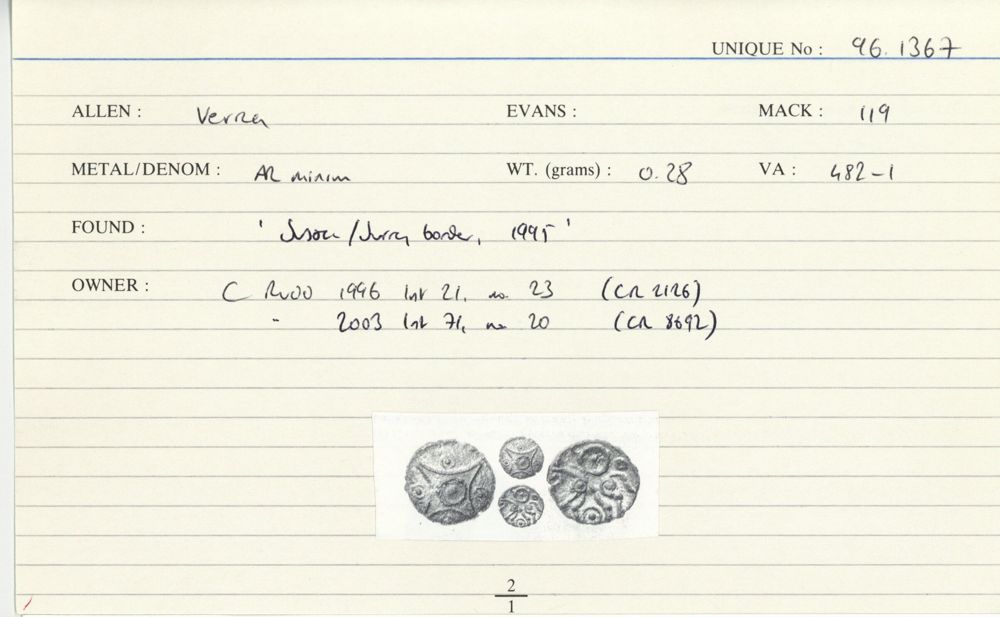 UNIQUE No : 96.1367
ALLEN : Verica EVANS : MACK : 119
METAL/DENOM : AR minim WT. (grams) : 0.28 VA : 482-1
FOUND : ' Sussex/Surrey border, 1995 '
OWNER : C RUDD 1996 list 21, no. 23 (CR 2126)
" 2003 list 71, no 20 (CR 8692)
2
1